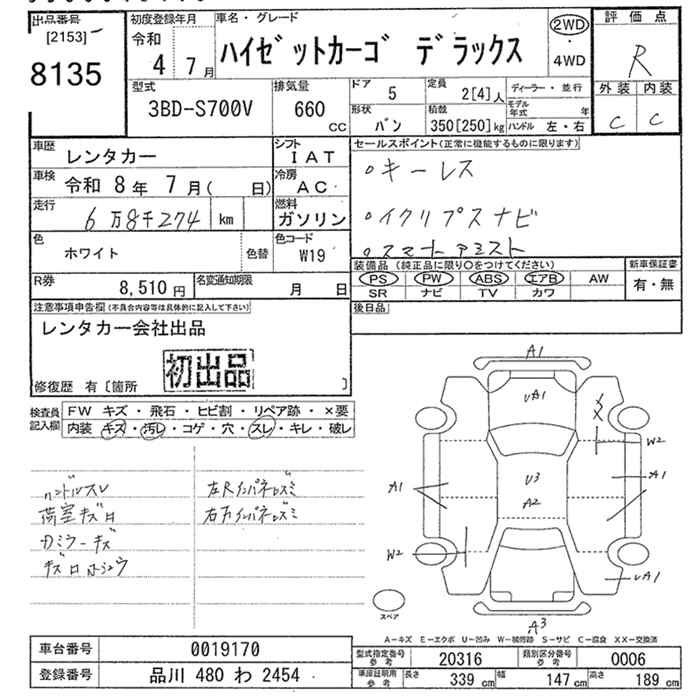 出品番号
[2153]
8135
初度登録年月
令和
4 7月
車名・グレード
ハイゼットカーゴ デラックス
2WD
・
4WD
評価点
R
外装 内装
C C
型式
3BD-S700V
排気量
660
CC
ドア
5
定員
2[4]人
形状
バン
積載
350[250]kg
ディーラー・並行
モデル年式 年
ハンドル 左・右
車歴
レンタカー
シフト
IAT
車検
令和 8年 7月( 日)
冷房
AC
走行
6万8千274 km
燃料
ガソリン
色
ホワイト
色替
色コード
W19
R券
8,510円
名変通知期限
月 日
セールスポイント(正常に機能するものに限ります)
○キーレス
○イクリプスナビ
○スマートアシスト
装備品(純正品に限り○をつけてください)
PS PW ABS エアB AW
SR ナビ TV カワ
新車保証書
有・無
後日品
注意事項申告欄(不具合内容等は具体的に記入して下さい)
レンタカー会社出品
初出品
修復歴 有〔箇所 〕
検査員記入欄
FW キズ・飛石・ヒビ割・リペア跡・×要
内装 キズ・汚レ・コゲ・穴・スレ・キレ・破レ
ハンドルスレ
荷室キズ
左Rインパネレズミ
右Fインパネレズミ
A1
UA1
W2
A1
U3
A2
A1
W2
UA1
A3
スペア
A-キズ E-エクボ U-凹み W-補修跡 S-サビ C-腐食 XX-交換済
車台番号
0019170
登録番号
品川 480 わ 2454
型式指定番号
参考
20316
類別区分番号
参考
0006
車庫証明用
参考
長さ 339cm 幅 147cm 高さ 189cm